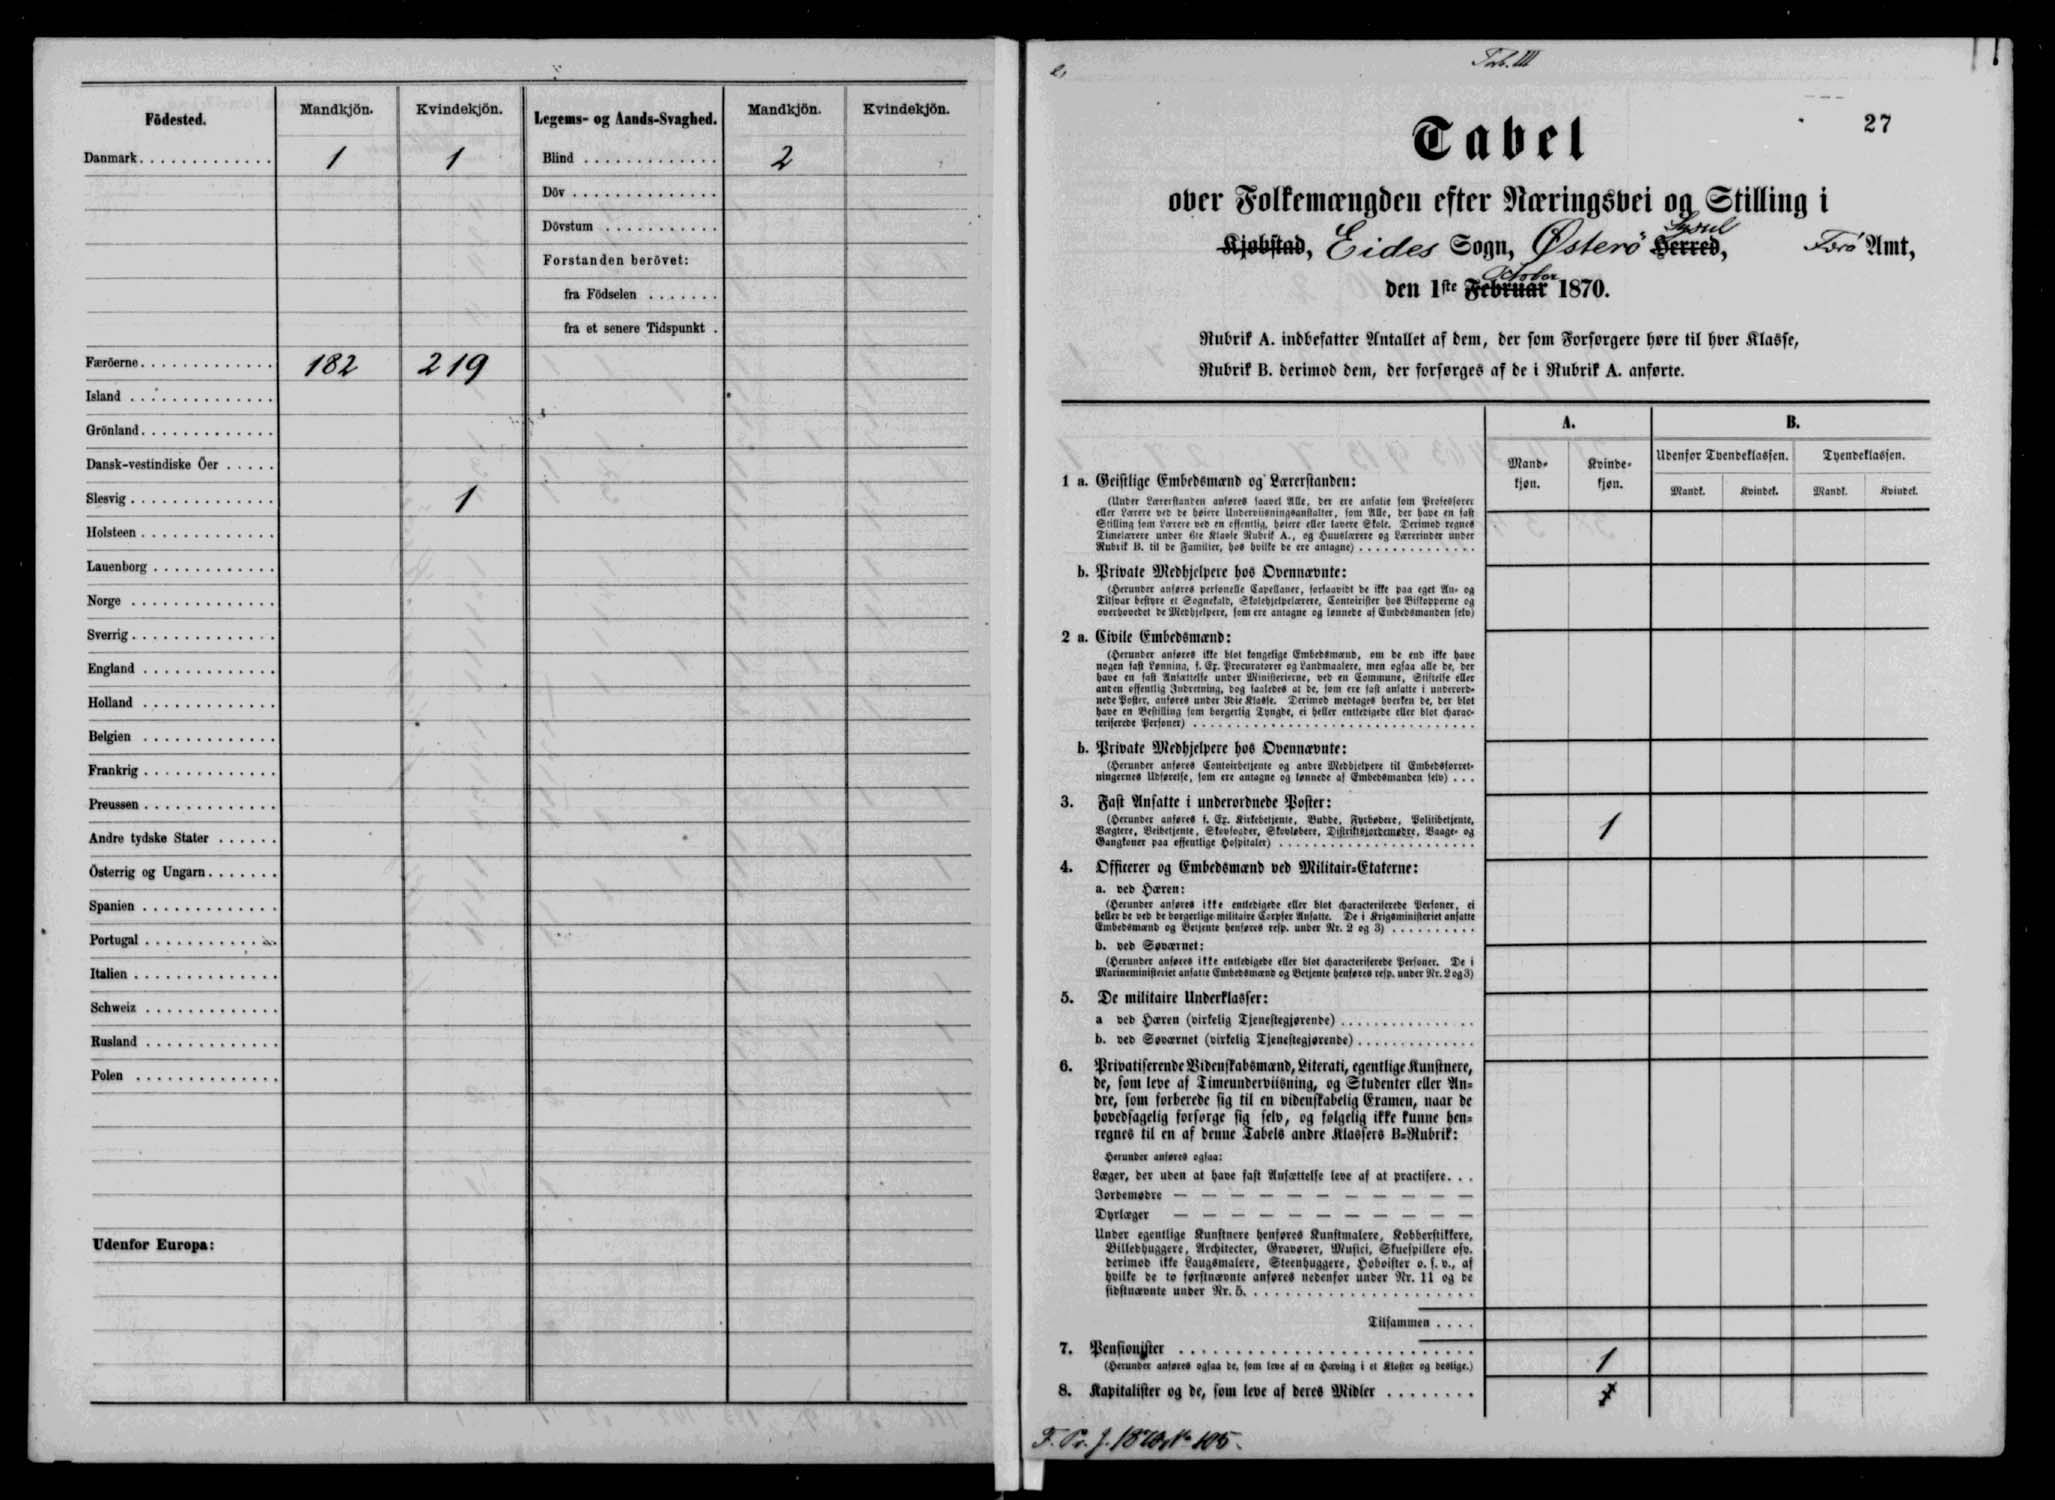 Födested. Mandkjön. Kvindekjön. Legems- og Aands-Svaghed. Mandkjön. Kvindekjön.
Danmark 1 1 Blind 2
Döv
Dövstum
Forstanden berövet:
fra Födselen
fra et senere Tidspunkt
Færöerne 182 219
Island
Grönland
Dansk-vestindiske Öer
Slesvig 1
Holsteen
Lauenborg
Norge
Sverrig
England
Holland
Belgien
Frankrig
Preussen
Andre tydske Stater
Österrig og Ungarn
Spanien
Portugal
Italien
Schweiz
Rusland
Polen
Udenfor Europa:
Tab. III
27
Tabel
over Folkemængden efter Næringsvei og Stilling i
Sysul
Kjøbstad, Eides Sogn, Østerö Herred, Færö Amt,
October
den 1ste Februar 1870.
Rubrik A. indbefatter Antallet af dem, der som Forsørgere høre til hver Klasse,
Rubrik B. derimod dem, der forsørges af de i Rubrik A. anførte.
A. B.
Mand-kjøn. Kvinde-kjøn. Udenfor Tyendeklassen. Tyendeklassen.
Mandk. Kvindek. Mandk. Kvindek.
1 a. Geistlige Embedsmænd og Lærerstanden:
(Under Lærerstanden anføres saavel Alle, der ere ansatte som Professorer
eller Lærere ved de høiere Underviisningsanstalter, som Alle, der have en fast
Stilling som Lærere ved en offentlig, høiere eller lavere Skole. Derimod regnes
Timelærere under 6te Klasse Rubrik A., og Huuslærere og Lærerinder under
Rubrik B. til de Familier, hos hvilke de ere antagne)
b. Private Medhjelpere hos Ovennævnte:
(Herunder anføres personelle Capellaner, forsaavidt de ikke paa eget An- og
Tilsvar bestyre et Sognekald, Skolehjelpelærere, Contoirister hos Biskopperne og
overhovedet de Medhjelpere, som ere antagne og lønnede af Embedsmanden selv)
2 a. Civile Embedsmænd:
(Herunder anføres ikke blot kongelige Embedsmænd, om de end ikke have
nogen fast Lønning, f. Ex. Procuratorer og Landmaalere, men ogsaa alle de, der
have en fast Ansættelse under Ministerierne, ved en Commune, Stiftelse eller
anden offentlig Indretning, dog saaledes at de, som ere fast ansatte i underord-
nede Poster, anføres under 3die Klasse. Derimod medtages hverken de, der blot
have en Bestilling som borgerlig Tyngde, ei heller entledigede eller blot charac-
teriserede Personer)
b. Private Medhjelpere hos Ovennævnte:
(Herunder anføres Contoirbetjente og andre Medhjelpere til Embedsforret-
ningernes Udførelse, som ere antagne og lønnede af Embedsmanden selv)
3. Fast Ansatte i underordnede Poster:
(Herunder anføres f. Ex. Kirkebetjente, Budde, Fyrbødere, Politibetjente,
Vægtere, Veibetjente, Skovfogder, Skovløbere, Distriktsjordemødre, Vaage- og
Gangkoner paa offentlige Hospitaler) 1
4. Officerer og Embedsmænd ved Militair-Etaterne:
a. ved Hæren:
(Herunder anføres ikke entledigede eller blot characteriserede Personer, ei
heller de ved de borgerlige militaire Corpser Ansatte. De i Krigsministeriet ansatte
Embedsmænd og Betjente henføres resp. under Nr. 2 og 3)
b. ved Søværnet:
(Herunder anføres ikke entledigede eller blot characteriserede Personer. De i
Marineministeriet ansatte Embedsmænd og Betjente henføres resp. under Nr. 2 og 3)
5. De militaire Underklasser:
a ved Hæren (virkelig Tjenestegjørende)
b. ved Søværnet (virkelig Tjenestegjørende)
6. Privatiserende Videnskabsmænd, Literati, egentlige Kunstnere,
de, som leve af Timeunderviisning, og Studenter eller An-
dre, som forberede sig til en videnskabelig Examen, naar de
hovedsagelig forsørge sig selv, og følgelig ikke kunne hen-
regnes til en af denne Tabels andre Klassers B-Rubrik:
Herunder anføres ogsaa:
Læger, der uden at have fast Ansættelse leve af at practisere
Jordemødre — — — — — — — — — — —
Dyrlæger — — — — — — — — — — —
Under egentlige Kunstnere henføres Kunstmalere, Kobberstikkere,
Billedhuggere, Architecter, Gravører, Musici, Skuespillere osv.
derimod ikke Laugsmalere, Steenhuggere, Hoboister o. s. v., af
hvilke de to førstnævnte anføres nedenfor under Nr. 11 og de
sidstnævnte under Nr. 5.
Tilsammen
7. Pensionister
(Herunder anføres ogsaa de, som leve af en Hæving i et Kloster og deslige.) 1
8. Kapitalister og de, som leve af deres Midler